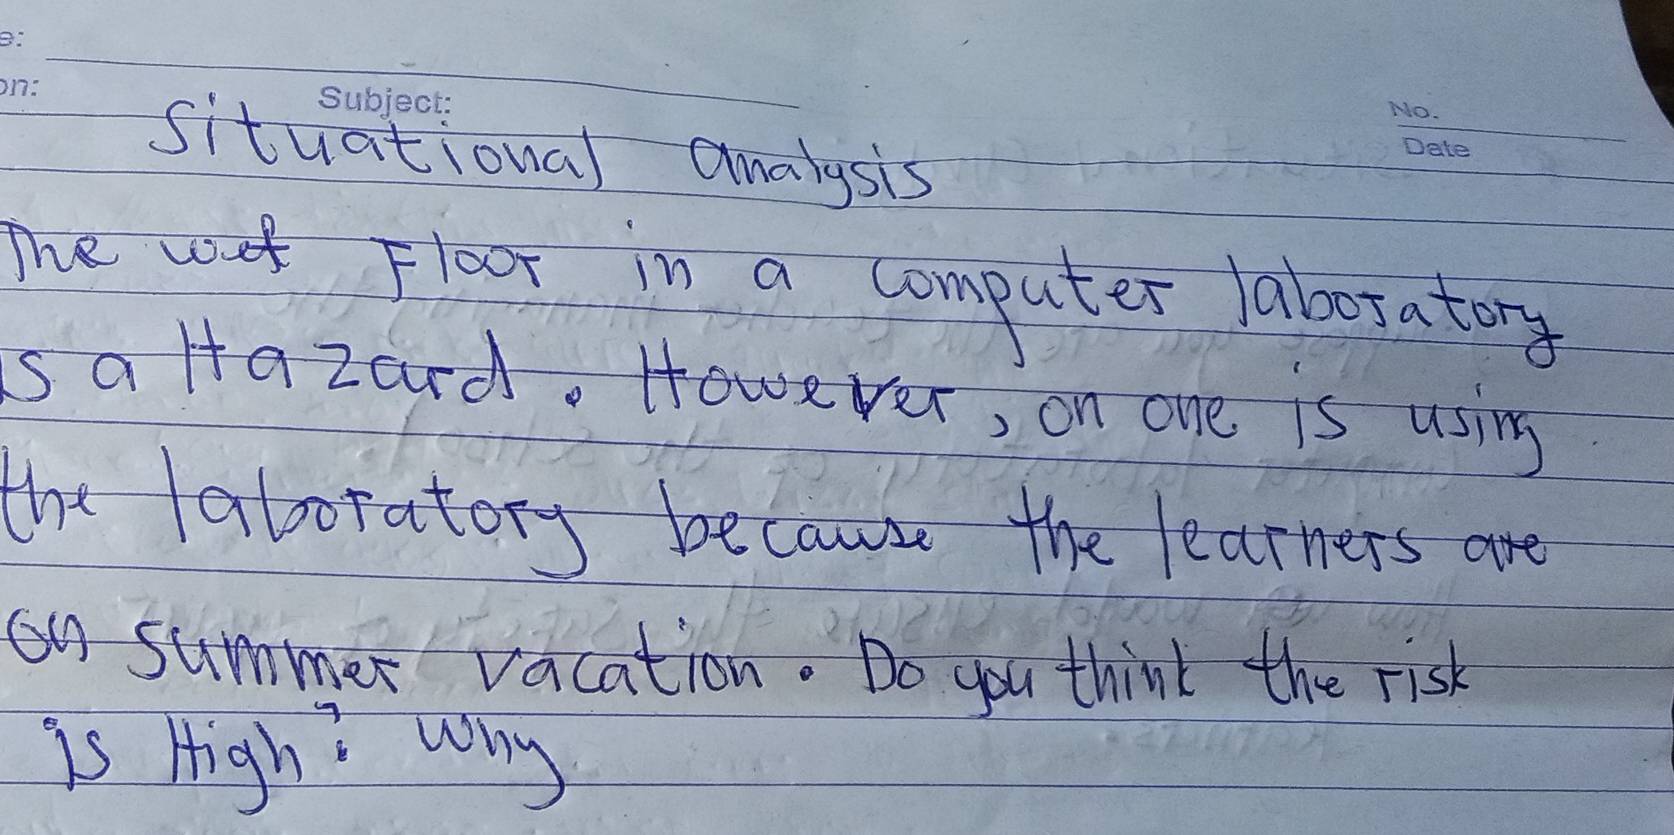 e:
on:
Subject:
No.
Date
Situational analysis
The wet Floor in a computer laboratory
is a Hazard. However, on one is using
the laboratory because the learners are
on summer vacation. Do you think the risk
is High? Why